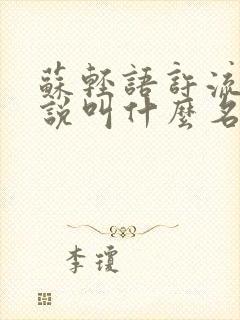 蘇輕語許流
說叫什麼名
李瓊